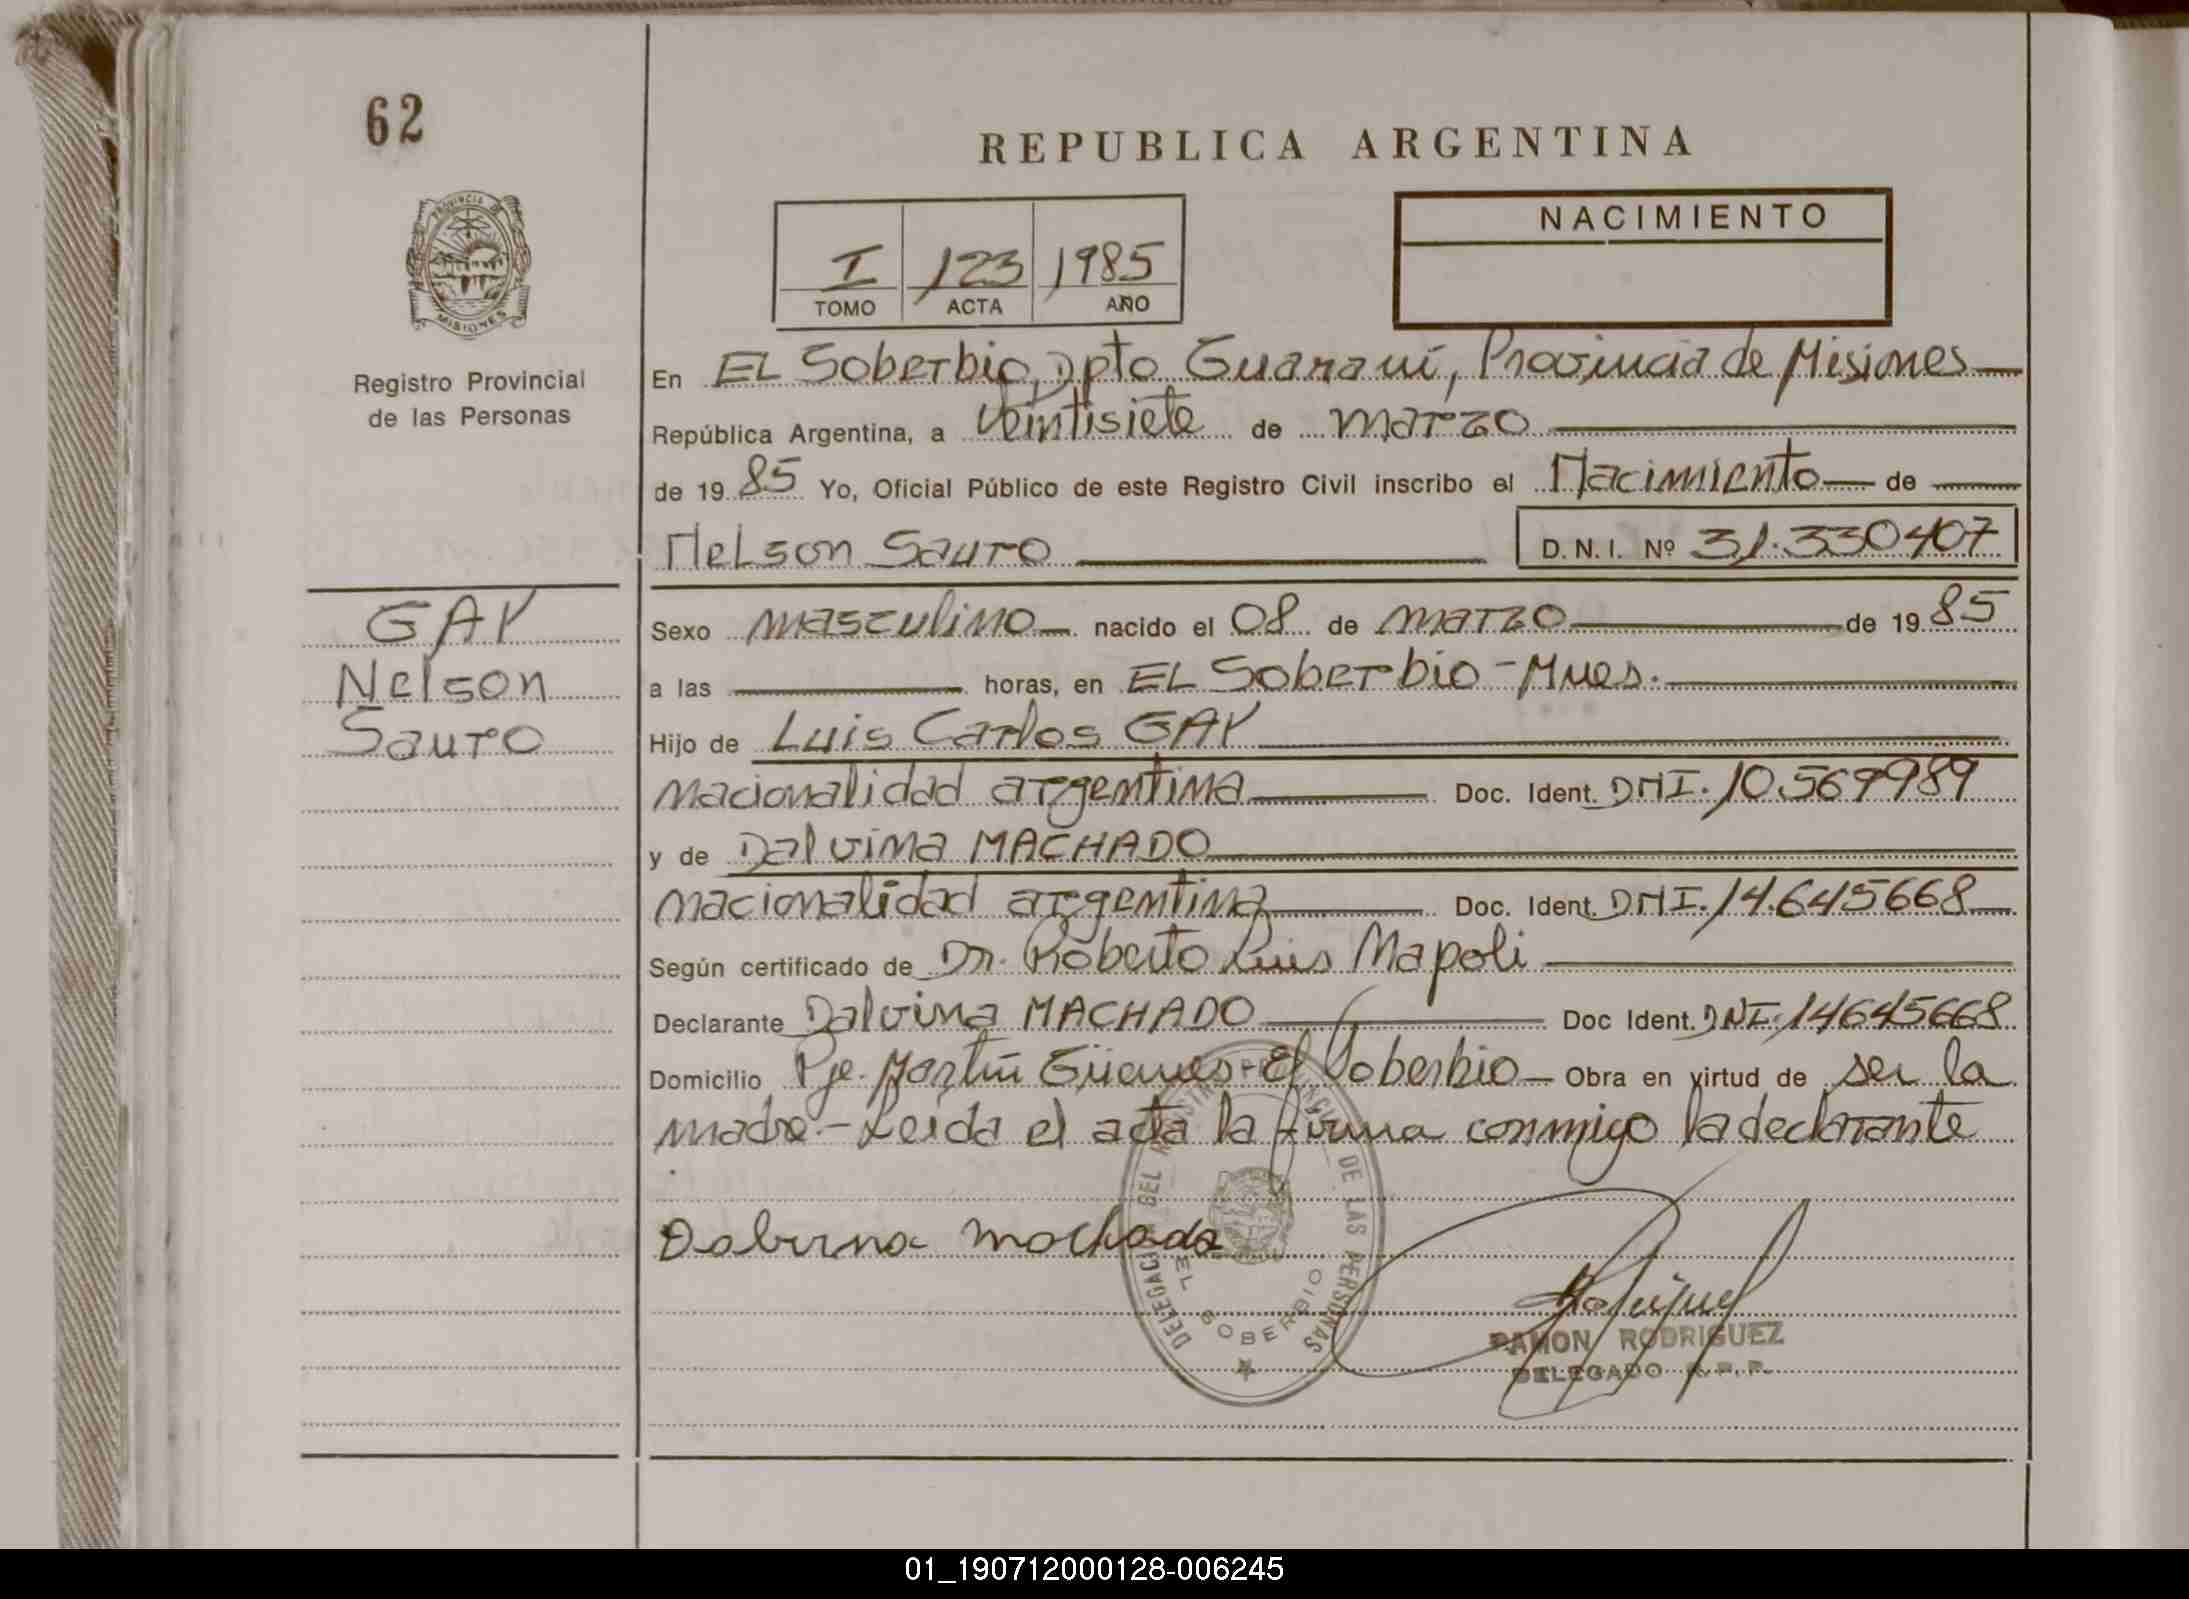 62
REPUBLICA ARGENTINA
PROVINCIA DE
MISIONES
Registro Provincial
de las Personas
I 123 1985
TOMO ACTA AÑO
NACIMIENTO
En EL Soberbio, Dpto Guaraní, Provincia de Misiones
República Argentina, a veintisiete de marzo
de 19 85 Yo, Oficial Público de este Registro Civil inscribo el Nacimiento de
Nelson Sauro D.N.I. Nº 31.330407
GAY
Nelson
Sauro
Sexo masculino nacido el 08 de marzo de 19 85
a las horas, en EL Soberbio - Mnes.
Hijo de Luis Carlos GAY
nacionalidad argentina Doc. Ident. DNI. 10.569989
y de Dalvina MACHADO
nacionalidad argentina Doc. Ident. DNI. 14.645668
Según certificado de Dr. Roberto Luis Napoli
Declarante Dalvina MACHADO Doc Ident. DNI. 14645668
Domicilio Pje. Martín Güemes - El Soberbio Obra en virtud de ser la
madre.- Leida el acta la firma conmigo la declarante
Dalvina Machado
DELEGACION DEL REGISTRO PROVINCIAL DE LAS PERSONAS
EL SOBERBIO
RAMON RODRIGUEZ
DELEGADO R.P.P.
01_190712000128-006245